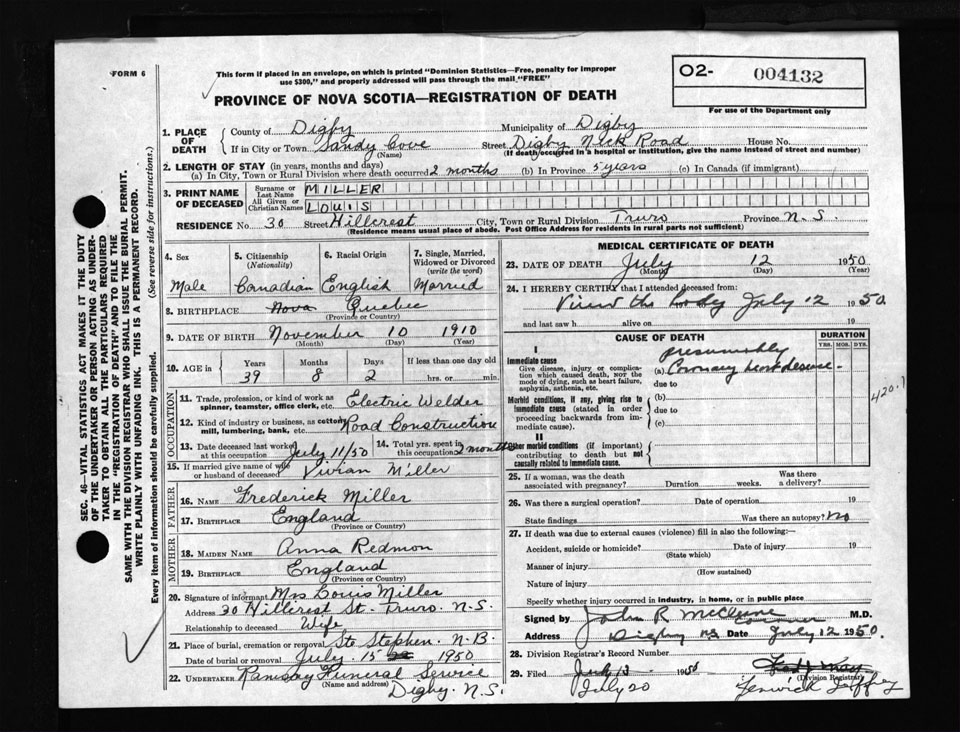 FORM 6
This form if placed in an envelope, on which is printed "Dominion Statistics—Free, penalty for improper
use $300," and properly addressed will pass through the mail "FREE"
O2- 004132
For use of the Department only
PROVINCE OF NOVA SCOTIA—REGISTRATION OF DEATH
1. PLACE OF DEATH { County of Digby Municipality of Digby
If in City or Town Sandy Cove (Name) Street Digby Nick Road House No.
(If death occurred in a hospital or institution, give the name instead of street and number)
2. LENGTH OF STAY (in years, months and days)
(a) In City, Town or Rural Division where death occurred 2 months (b) In Province 5 years (c) In Canada (if immigrant)
3. PRINT NAME OF DECEASED { Surname or Last Name MILLER
All Given or Christian Names LOUIS
RESIDENCE No. 30 Street Hillcrest City, Town or Rural Division Truro Province N.S.
(Residence means usual place of abode. Post Office Address for residents in rural parts not sufficient)
4. Sex Male
5. Citizenship (Nationality) Canadian
6. Racial Origin English
7. Single, Married, Widowed or Divorced (write the word) Married
8. BIRTHPLACE Nova Quebec
(Province or Country)
9. DATE OF BIRTH November 10 1910
(Month) (Day) (Year)
10. AGE in { Years 39 Months 8 Days 2 If less than one day old hrs. or min.
OCCUPATION
11. Trade, profession, or kind of work as spinner, teamster, office clerk, etc. Electric Welder
12. Kind of industry or business, as cotton mill, lumbering, bank, etc. Road Construction
13. Date deceased last worked at this occupation July 11/50
14. Total yrs. spent in this occupation 2 months
15. If married give name of wife or husband of deceased Vivian Miller
FATHER
16. NAME Frederick Miller
17. BIRTHPLACE England
(Province or Country)
MOTHER
18. MAIDEN NAME Anna Redmon
19. BIRTHPLACE England
(Province or Country)
20. Signature of informant Mrs Louis Miller
Address 30 Hillcrest St. Truro. N.S.
Relationship to deceased Wife
21. Place of burial, cremation or removal Ste Stephen. N.B.
Date of burial or removal July 15 1950
22. UNDERTAKER Ramsay Funeral Service
(Name and address) Digby. N.S.
MEDICAL CERTIFICATE OF DEATH
23. DATE OF DEATH July 12 1950
(Month) (Day) (Year)
24. I HEREBY CERTIFY that I attended deceased from:
View the body July 12 1950.
and last saw h alive on 19
CAUSE OF DEATH
DURATION
YRS. MOS. DYS.
I
Immediate cause
Give disease, injury or complication which caused death, not the mode of dying, such as heart failure, asphyxia, asthenia, etc.
presumably
(a) Coronary heart disease -
due to
420.1
Morbid conditions, if any, giving rise to immediate cause (stated in order proceeding backwards from immediate cause).
(b)
due to
(c)
II
Other morbid conditions (if important) contributing to death but not causally related to immediate cause.
25. If a woman, was the death associated with pregnancy? Duration weeks. Was there a delivery?
26. Was there a surgical operation? Date of operation 19
State findings Was there an autopsy? No
27. If death was due to external causes (violence) fill in also the following:—
Accident, suicide or homicide? Date of injury 19
(State which)
Manner of injury
(How sustained)
Nature of injury
Specify whether injury occurred in industry, in home, or in public place
Signed by John R McCleave M.D.
Coroner
Address Digby NS Date July 12 1950.
28. Division Registrar's Record Number
29. Filed July 13 1950
July 20
(Division Registrar)
Fenwick Jeffrey
SEC. 46—VITAL STATISTICS ACT MAKES IT THE DUTY
OF THE UNDERTAKER OR PERSON ACTING AS UNDER-
TAKER TO OBTAIN ALL THE PARTICULARS REQUIRED
IN THE "REGISTRATION OF DEATH" AND TO FILE THE
SAME WITH THE DIVISION REGISTRAR WHO SHALL ISSUE THE BURIAL PERMIT.
WRITE PLAINLY WITH UNFADING INK. THIS IS A PERMANENT RECORD.
Every item of information should be carefully supplied. (See reverse side for instructions.)